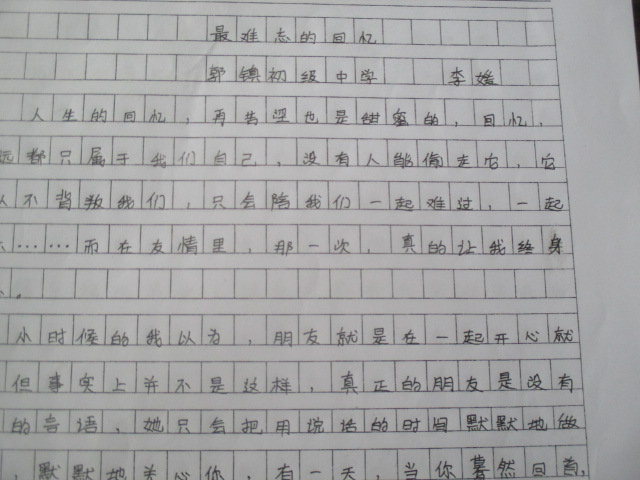 最难忘的回忆
郭镇初级中学 李媛
人生的回忆，再苦涩也是甜蜜的，回忆，
远都只属于我们自己，没有人能偷走它，它
不背叛我们，只会陪我们一起难过，一起
……而在友情里，那一次，真的让我终身
小时候的我以为，朋友就是在一起开心就
但事实上并不是这样，真正的朋友是没有
的言语，她只会把用说话的时间默默地做
，默默地关心你，有一天，当你蓦然回首，